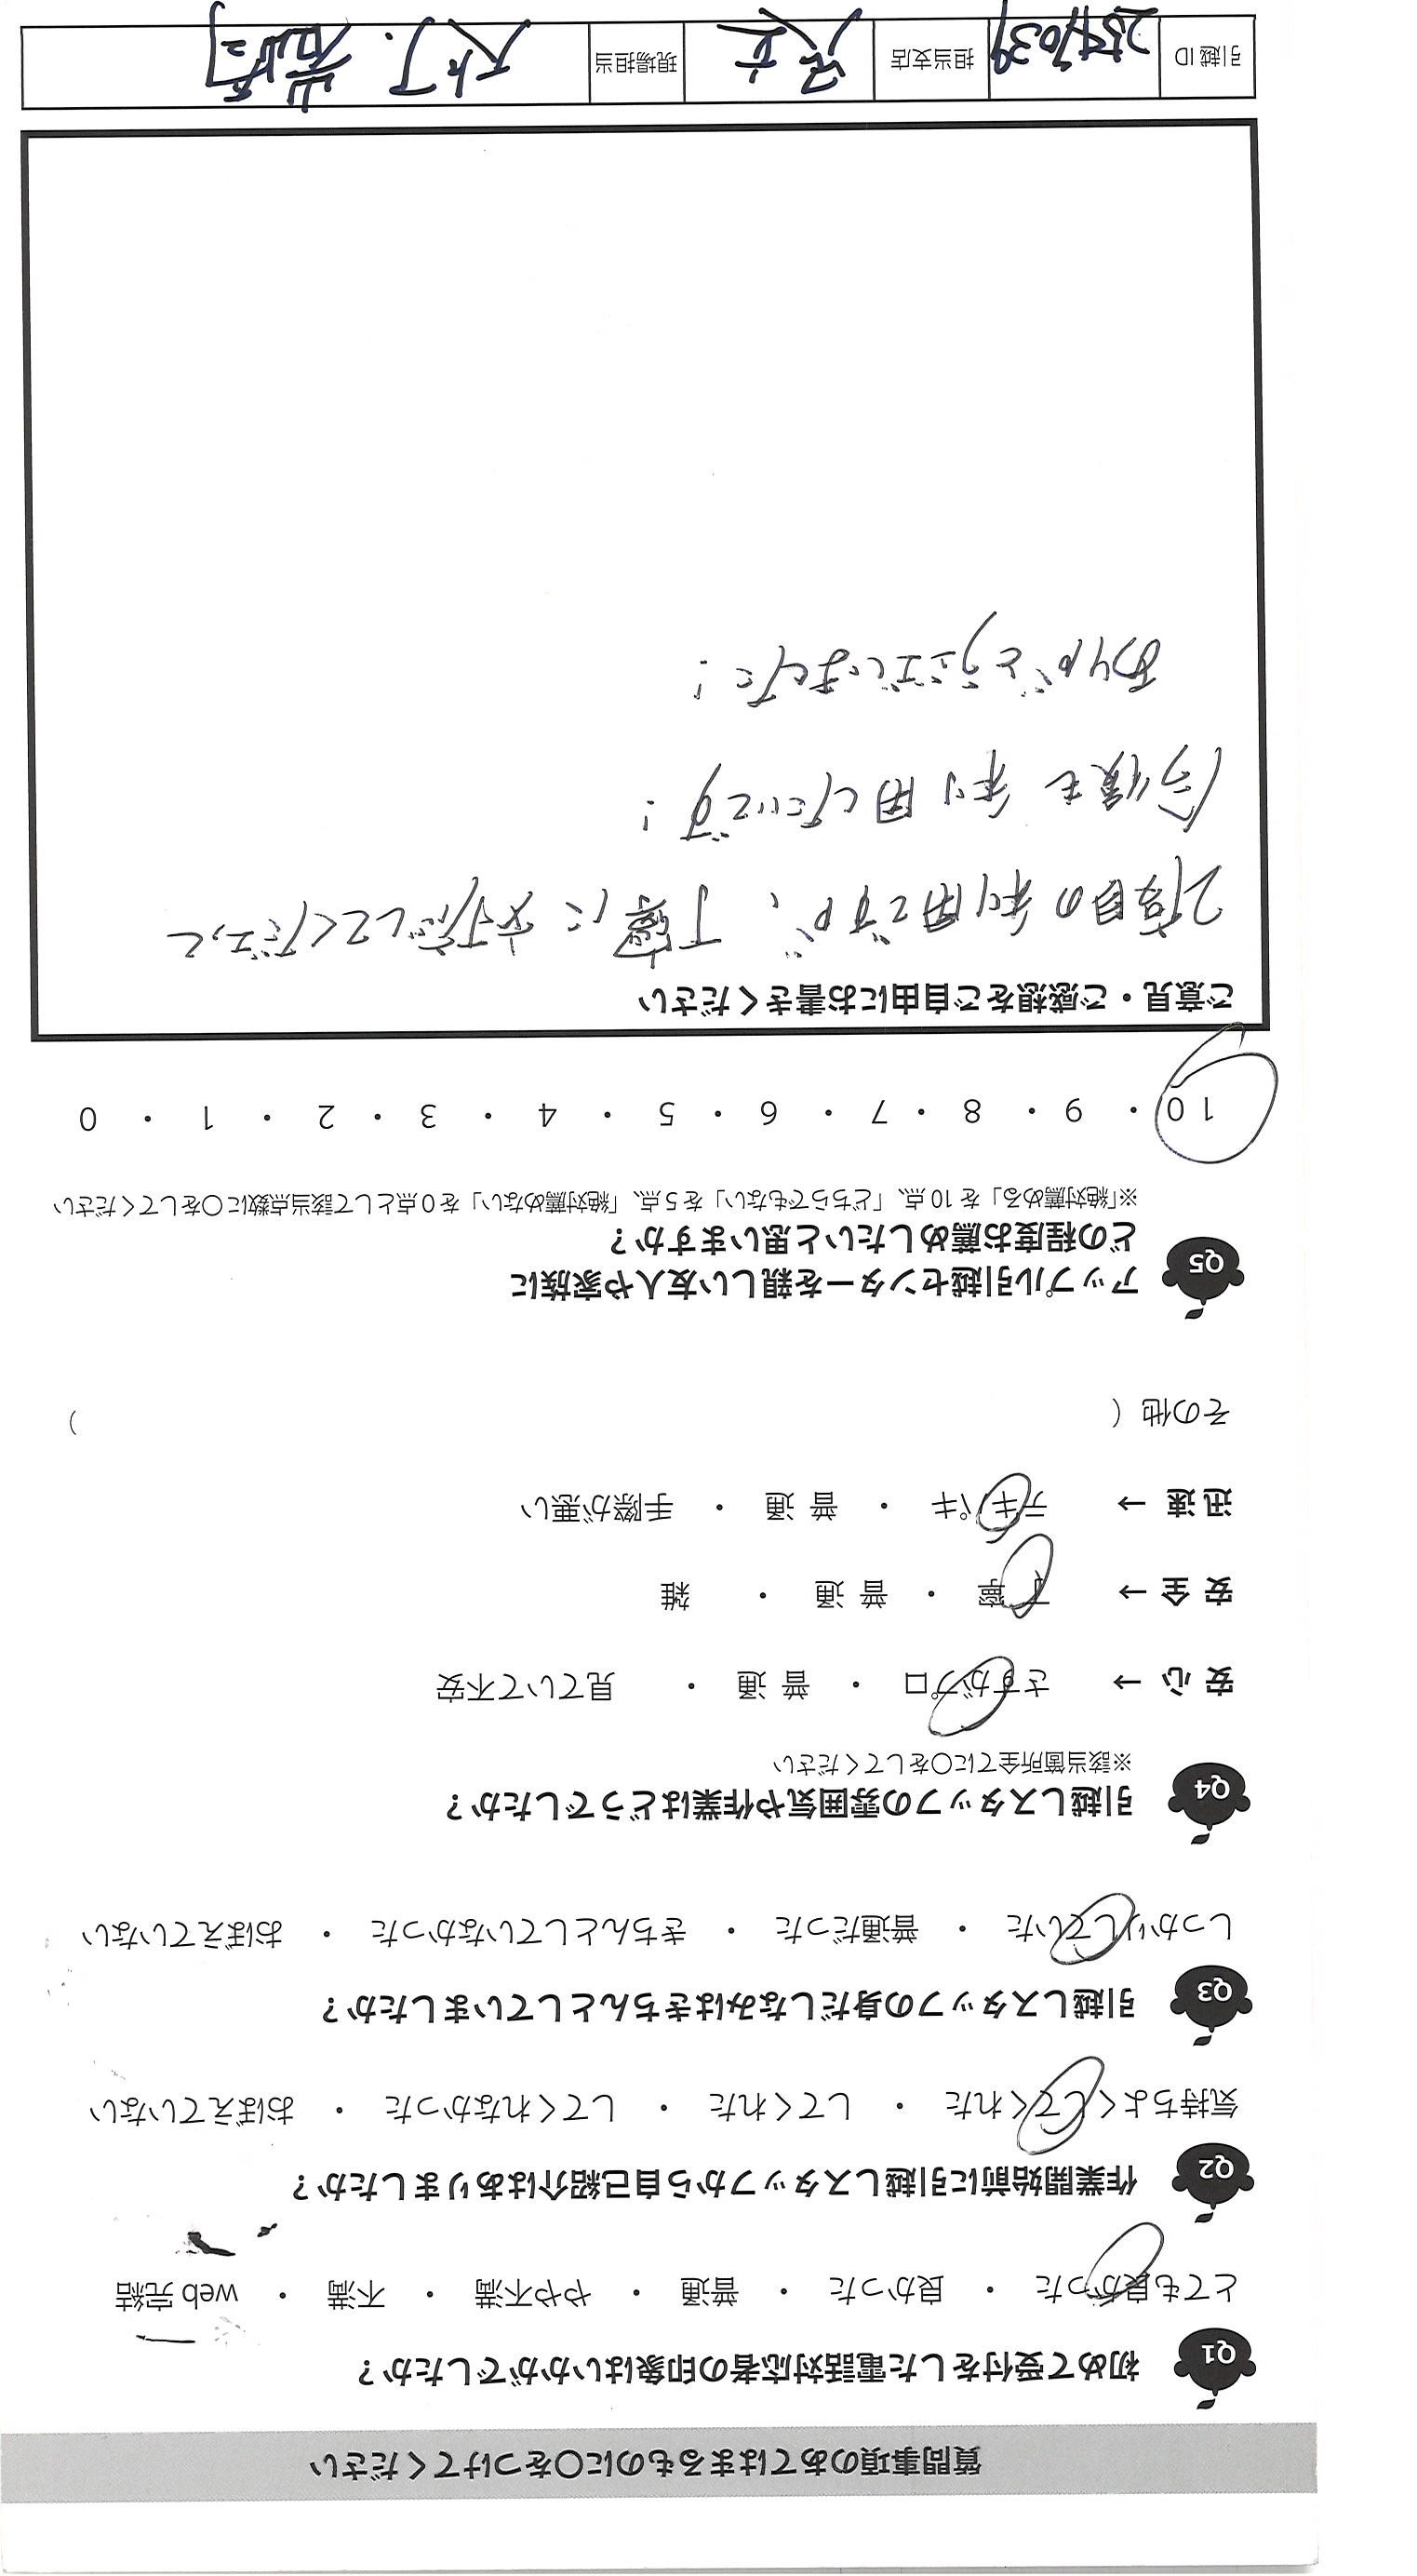 質問事項のあてはまるものに〇をつけてください
Q1 初めて受付をした電話対応者の印象はいかがでしたか？
とても良かった ・ 良かった ・ 普通 ・ やや不満 ・ 不満 ・ web 完結
Q2 作業開始前に引越しスタッフから自己紹介はありましたか？
気持ちよくしてくれた ・ してくれた ・ してくれなかった ・ おぼえていない
Q3 引越しスタッフの身だしなみはきちんとしていましたか？
しっかりしていた ・ 普通だった ・ きちんとしていなかった ・ おぼえていない
Q4 引越しスタッフの雰囲気や作業はどうでしたか？
※該当箇所全てに〇をしてください
安 心 → さすがプロ ・ 普 通 ・ 見ていて不安
安 全 → 丁 寧 ・ 普 通 ・ 雑
迅 速 → テキパキ ・ 普 通 ・ 手際が悪い
その他 ( )
Q5 アップル引越センターを親しい友人や家族に
どの程度お薦めしたいと思いますか？
※「絶対薦める」を 10 点、「どちらでもない」を 5 点、「絶対薦めない」を 0 点として該当点数に〇をしてください
10 ・ 9 ・ 8 ・ 7 ・ 6 ・ 5 ・ 4 ・ 3 ・ 2 ・ 1 ・ 0
ご意見・ご感想をご自由にお書きください
2度目の利用ですが、丁寧に対応してくださって
今後も利用したいです！
ありがとうございました！
引越 ID 担当支店 現場担当